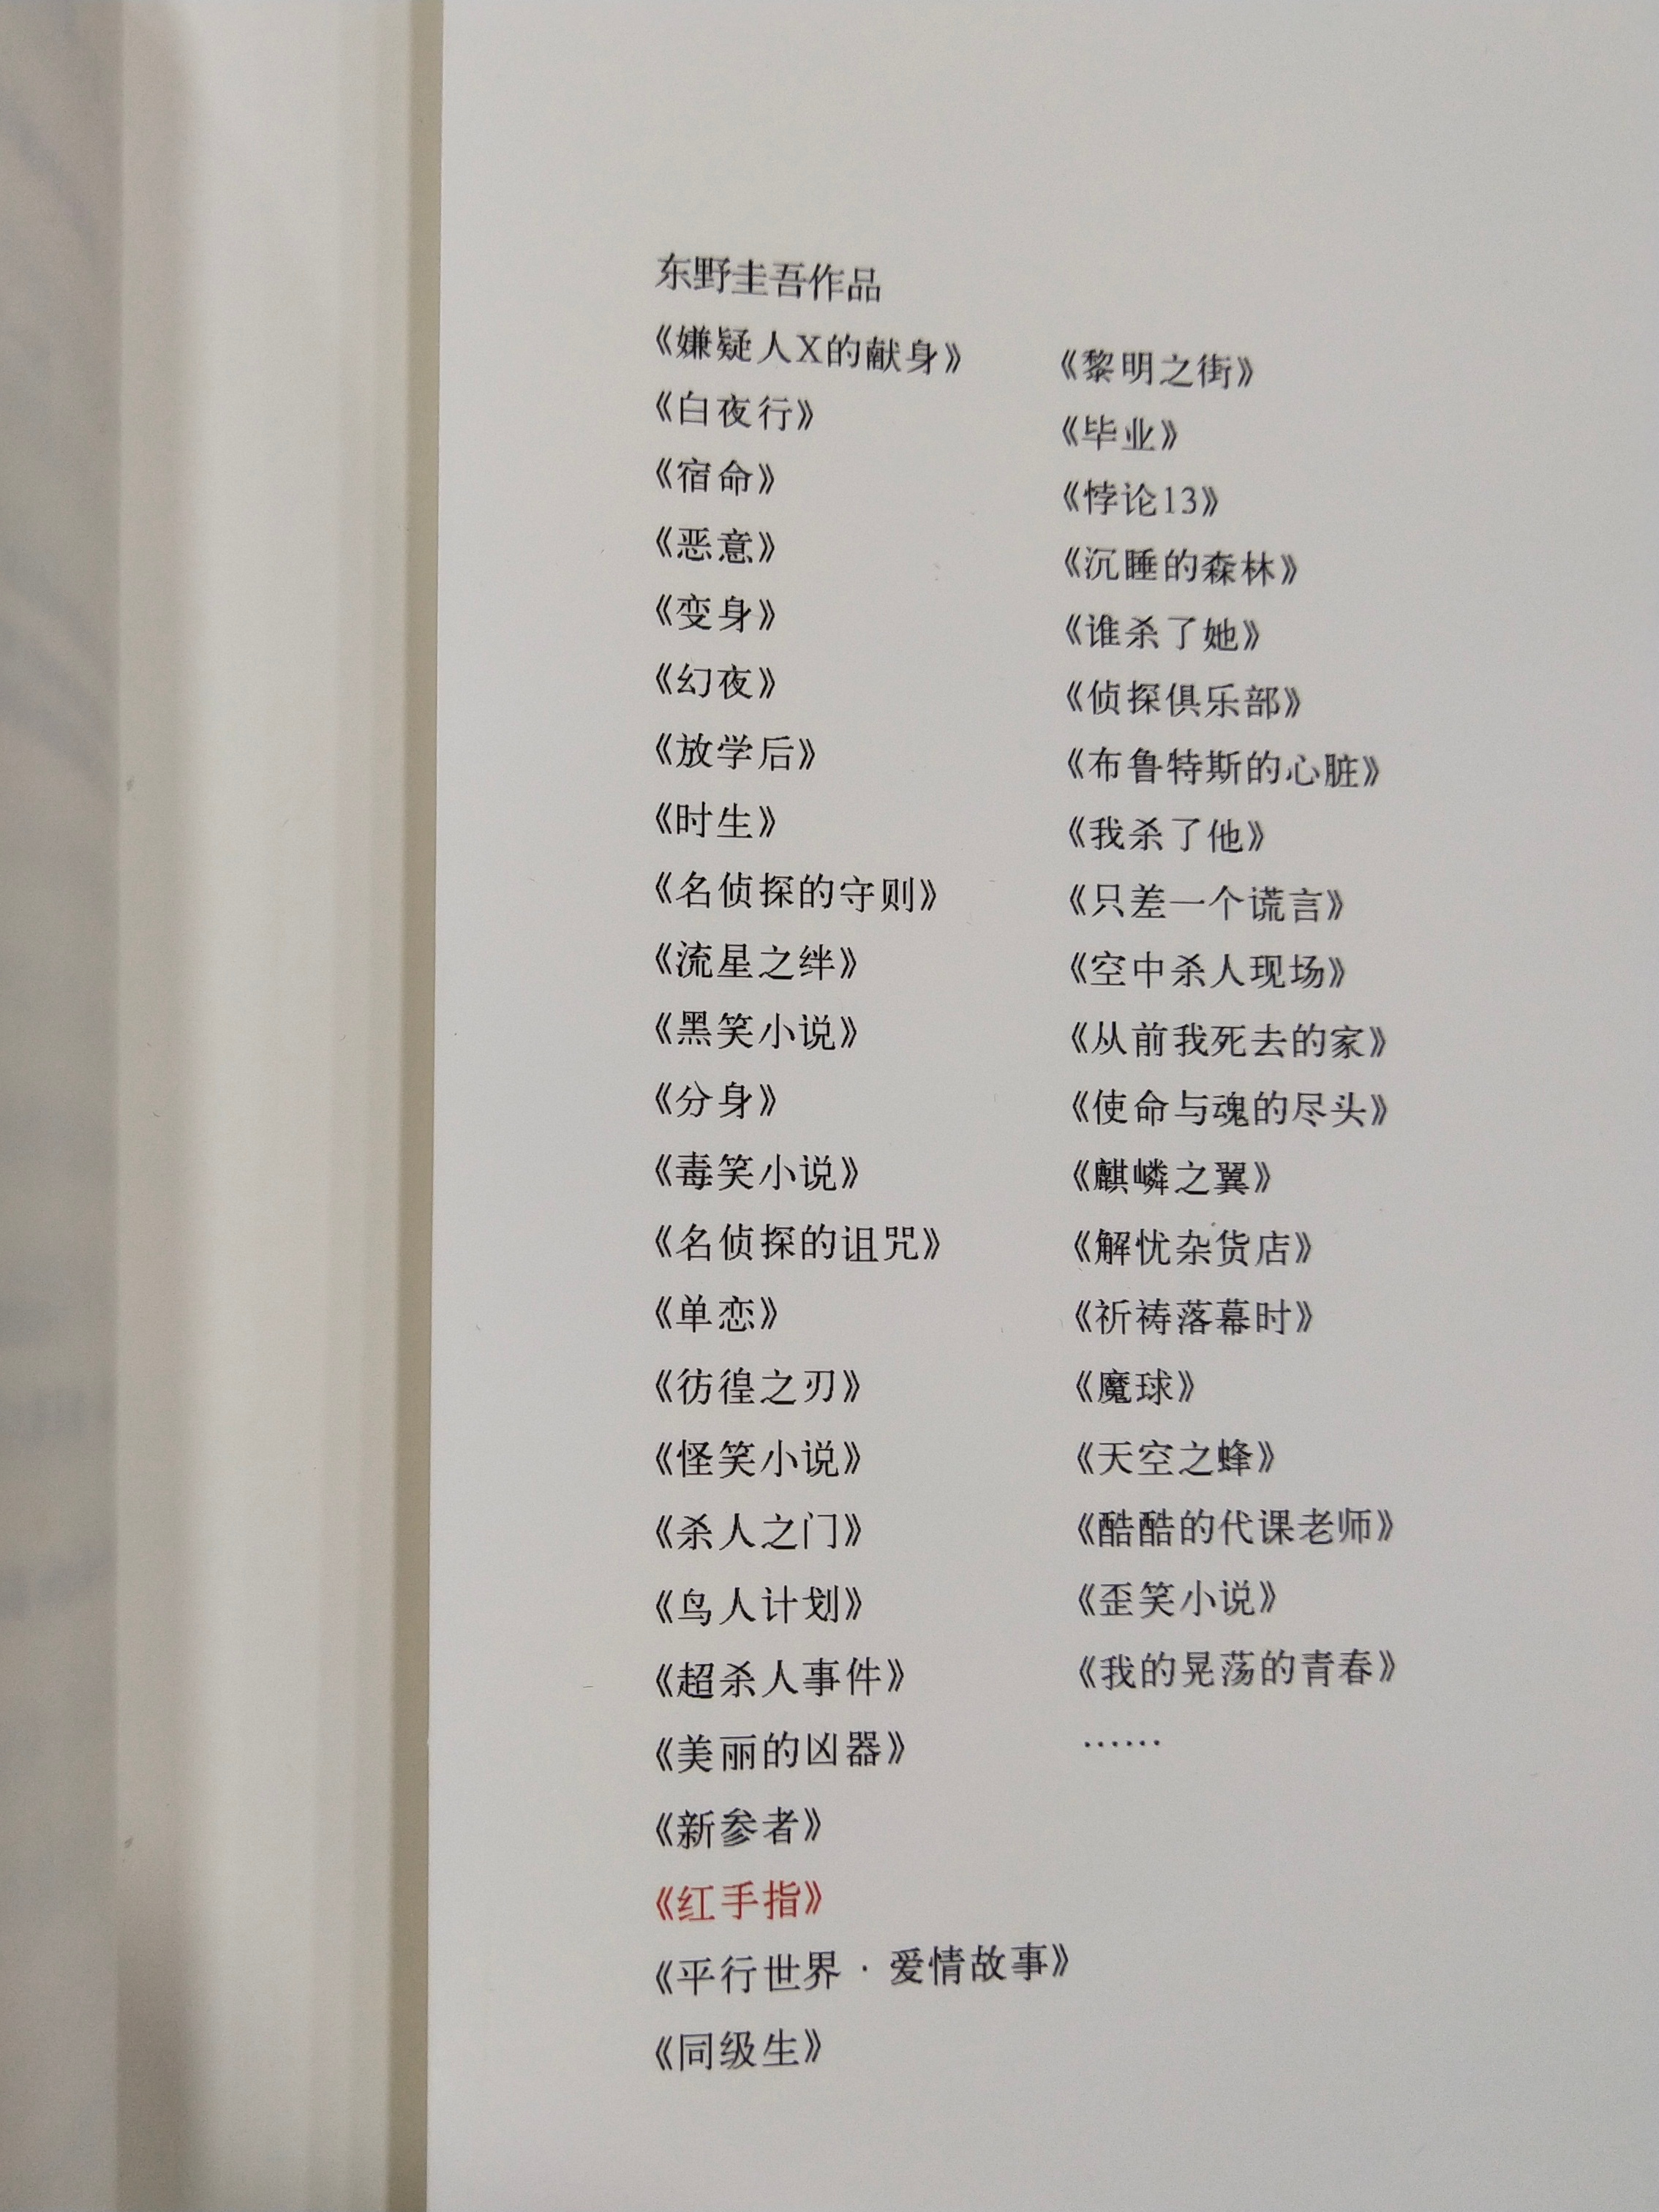 东野圭吾作品
《嫌疑人X的献身》
《白夜行》
《宿命》
《恶意》
《变身》
《幻夜》
《放学后》
《时生》
《名侦探的守则》
《流星之绊》
《黑笑小说》
《分身》
《毒笑小说》
《名侦探的诅咒》
《单恋》
《彷徨之刃》
《怪笑小说》
《杀人之门》
《鸟人计划》
《超杀人事件》
《美丽的凶器》
《新参者》
《红手指》
《平行世界·爱情故事》
《同级生》
《黎明之街》
《毕业》
《悖论13》
《沉睡的森林》
《谁杀了她》
《侦探俱乐部》
《布鲁特斯的心脏》
《我杀了他》
《只差一个谎言》
《空中杀人现场》
《从前我死去的家》
《使命与魂的尽头》
《麒麟之翼》
《解忧杂货店》
《祈祷落幕时》
《魔球》
《天空之蜂》
《酷酷的代课老师》
《歪笑小说》
《我的晃荡的青春》
……